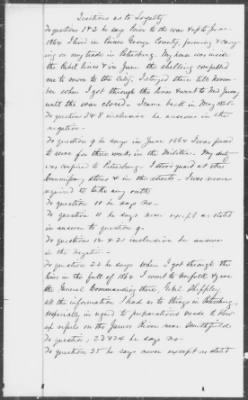 Questions as to Loyalty
To question 1 & 2 he says Prior to the war & up to June
1864 I lived in Prince George County, farming & carry-
ing on my trade in Petersburg. My house was inside
the Rebel lines & in June the shelling compelled
me to move to the City, I stayed there till Novem-
ber when I got through the lines & went to New Jersey
until the war closed. I came back in May 1865.
To question 3 & 8 inclusive he answers in the
negative -
To question 9 he says in June 1864 I was forced
to serve for three weeks in the Militia. My duty
was confined to Petersburg. I stood guard at the
Commissary stores & in the streets - I was never
required to take any oath
To question 10 he says No -
To question 11 he says never except as stated
in answer to question 9 -
To question 12 & 21 inclusive he answers
in the negative -
To question 22 he says when I got through the
lines in the fall of 1864 I went to Norfolk & gave
the General Commanding there, Genl Shepley,
all the information I had as to things in Petersburg,
especially in regard to preparations made to blow
up vessels on the James River near Smithfield.
To question 23 & 24 he says No -
To question 25 he says never except as stated